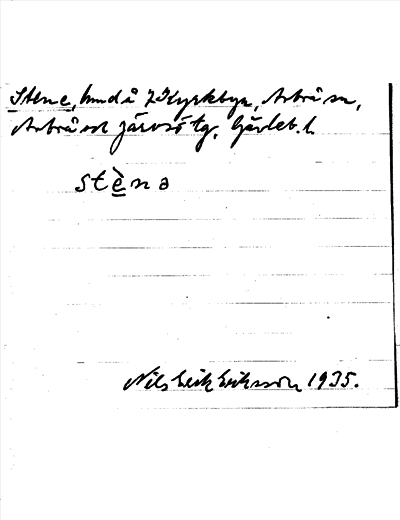 Stene, hmd å 7 Kyrkbyn, Arbrå sn,
Arbrå och Järvsö tg, Gävleb. l.
stèna
Nils Erik Eriksson 1935.